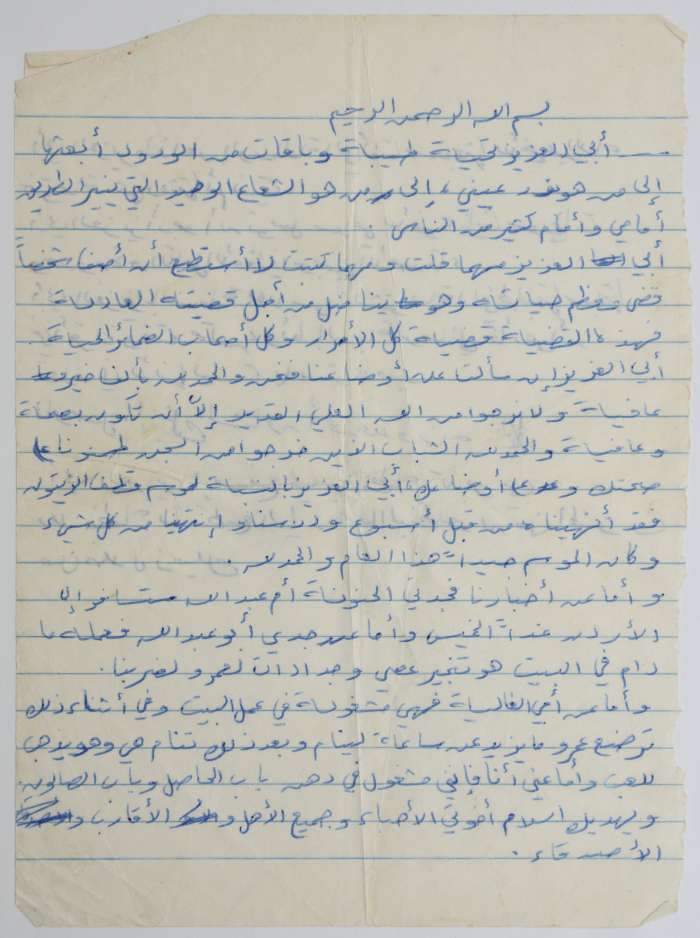 بسم الله الرحمن الرحيم
أبي العزيز تحية طيبة وباقات من الورود أبعثها
إلى من هو نور عيني، إلى من هو الشعاع الوحيد التي ينير الطريق
أمامي وأمام كثير من الناس
أبي العزيز مهما قلت ومهما كتبت لا أستطيع أن أصف شخصاً
قضى معظم حياته وهو يناضل من أجل قضيته العادلة
فهذه القضية قضية كل الأحرار وكل أصحاب الضمائر الحية
أبي العزيز إن سألت عن أوضاعنا فنحن والحمد لله بألف خير و
عافية ولا نرجوا من الله العلي القدير إلا أن تكون بصحة
وعافية والحمد لله الشباب الذين خرجوا من السجن طمنونا على
صحتك وعن أوضاعك، أبي العزيز بالنسبة لموسم قطف الزيتون
فقد أنهيناه من قبل أسبوع ودرسنا وإنتهينا من كل شيء
وكان الموسم جيداً هذا العام والحمد لله.
وأما عن أخبارنا فجدتي الحنونة أم عبد الله ستسافر إلى
الأردن غداً الخميس وأما عن جدي أبو عبد الله فعمله ما
دام في البيت هو تنجير عصي وجدادات لعمر ولضربنا.
وأما عن أمي الغالية فهي مشغولة في عمل البيت وفي أثناء ذلك
ترضع عمر ما يزيد عن ساعة لينام وبعد ذلك تنام هي وهو يذهب
للعب وأما عني أنا فإنني مشغول في دهن باب الحاصل وباب الصالون.
ويهديك السلام أخوتي الأحباء وجميع الأهل والأقارب و
الأصدقاء.